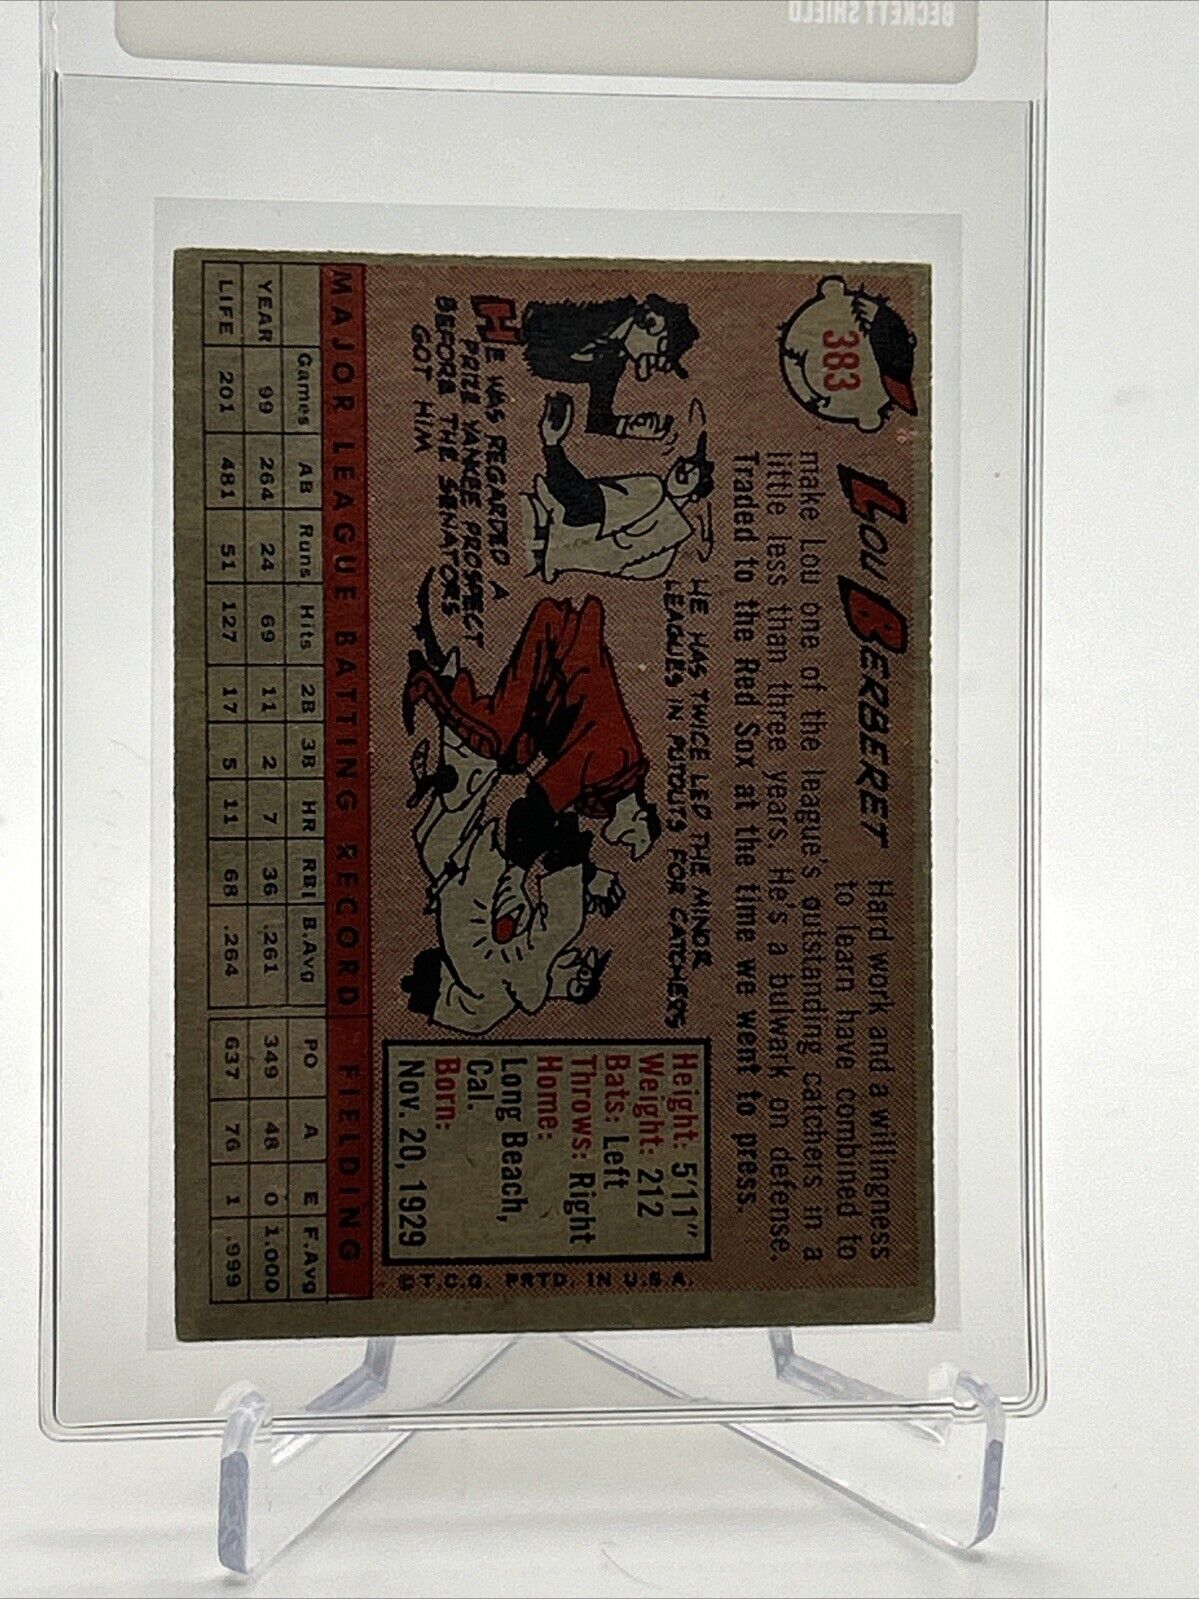 BECKETT SHIELD
383
LOU BERBERET
Hard work and a willingness
to learn have combined to
make Lou one of the league's outstanding catchers in a
little less than three years. He's a bulwark on defense.
Traded to the Red Sox at the time we went to press.
HE HAS TWICE LED THE MINOR
LEAGUES IN PUTOUTS FOR CATCHERS
HE WAS REGARDED A
PRIZE YANKEE PROSPECT
BEFORE THE SENATORS
GOT HIM
Height: 5'11"
Weight: 212
Bats: Left
Throws: Right
Home:
Long Beach,
Cal.
Born:
Nov. 20, 1929
© T.C.G. PRTD. IN U.S.A.
MAJOR LEAGUE BATTING RECORD FIELDING
Games AB Runs Hits 2B 3B HR RBI B.Avg PO A E F.Avg
YEAR 99 264 24 69 11 2 7 36 .261 349 48 0 1.000
LIFE 201 481 51 127 17 5 11 68 .264 637 76 1 .999